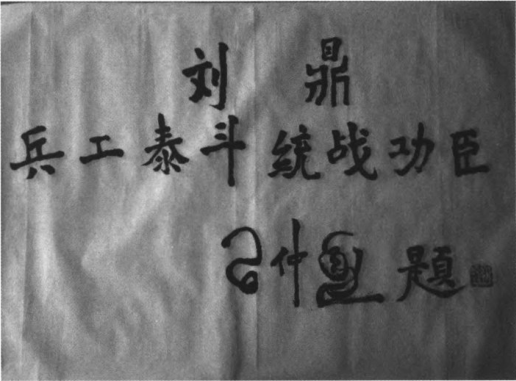 刘鼎
兵工泰斗 统战功臣
吕仲勋 题